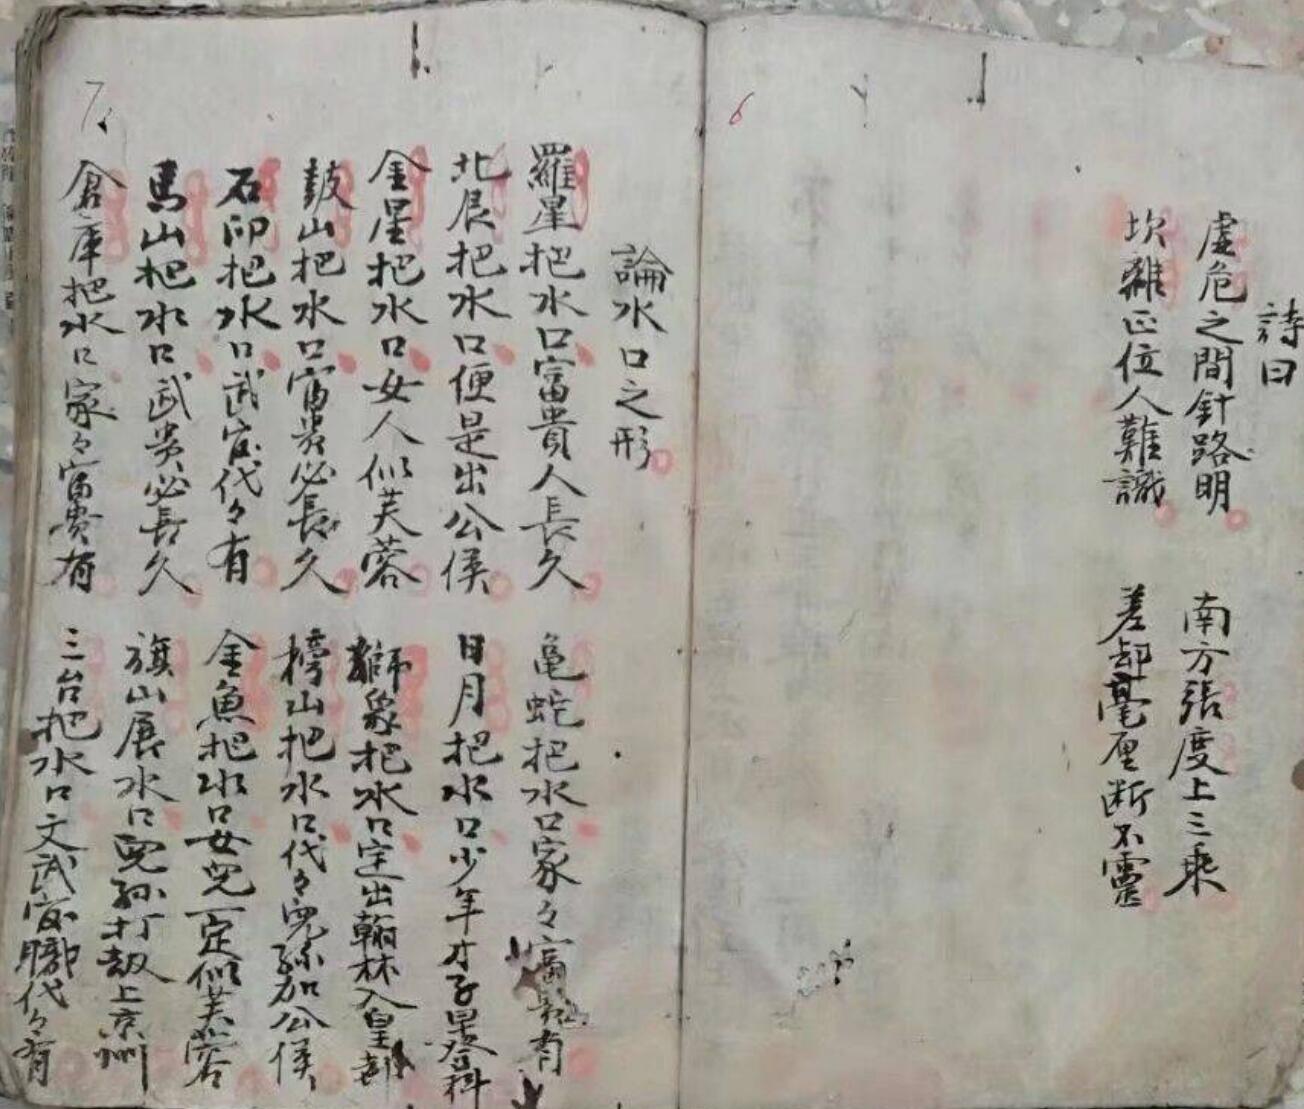 6
詩曰
虛危之間針路明 南方張度上三乘
坎離正位人難識 差却毫厘断不靈
7
論水口之形
羅星把水口富貴人長久 亀蛇把水口家々富貴有
北辰把水口便是出公侯 日月把水口少年才子早登科
金星把水口女人似芙蓉 獅象把水口定出翰林入皇都
鼓山把水口富貴必長久 榜山把水口代々児孫加公侯
石印把水口武官代々有 金魚把水口女児一定似芙蓉
馬山把水口武貴必長久 旗山展水口児孫打劫上京州
倉庫把水口家々富貴有 三台把水口文武官職代々有